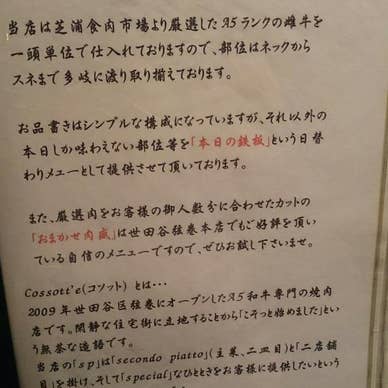 当店は芝浦食肉市場より厳選したA5ランクの雌牛を
一頭単位で仕入れておりますので、部位はネックから
スネまで多岐に渡り取り揃えております。
お品書きはシンプルな構成になっていますが、それ以外の
本日しか味わえない部位等を「本日の鉄板」という日替
わりメニューとして提供させて頂いております。
また、厳選肉をお客様の御人数分に合わせたカットの
「おまかせ肉盛」は世田谷弦巻本店でもご好評を頂い
ている自信のメニューですので、ぜひお試し下さいませ。
Cossott'e(コソット) とは…
2009年世田谷区弦巻にオープンしたA5和牛専門の焼肉
店です。閑静な住宅街に立地することから「こそっと始めました」とい
う無茶な造語です。
当店の「sp」は「secondo piatto」(主菜、二皿目)と「二店舗
目」を掛け、そして「special」なひとときをお客様に提供したいという